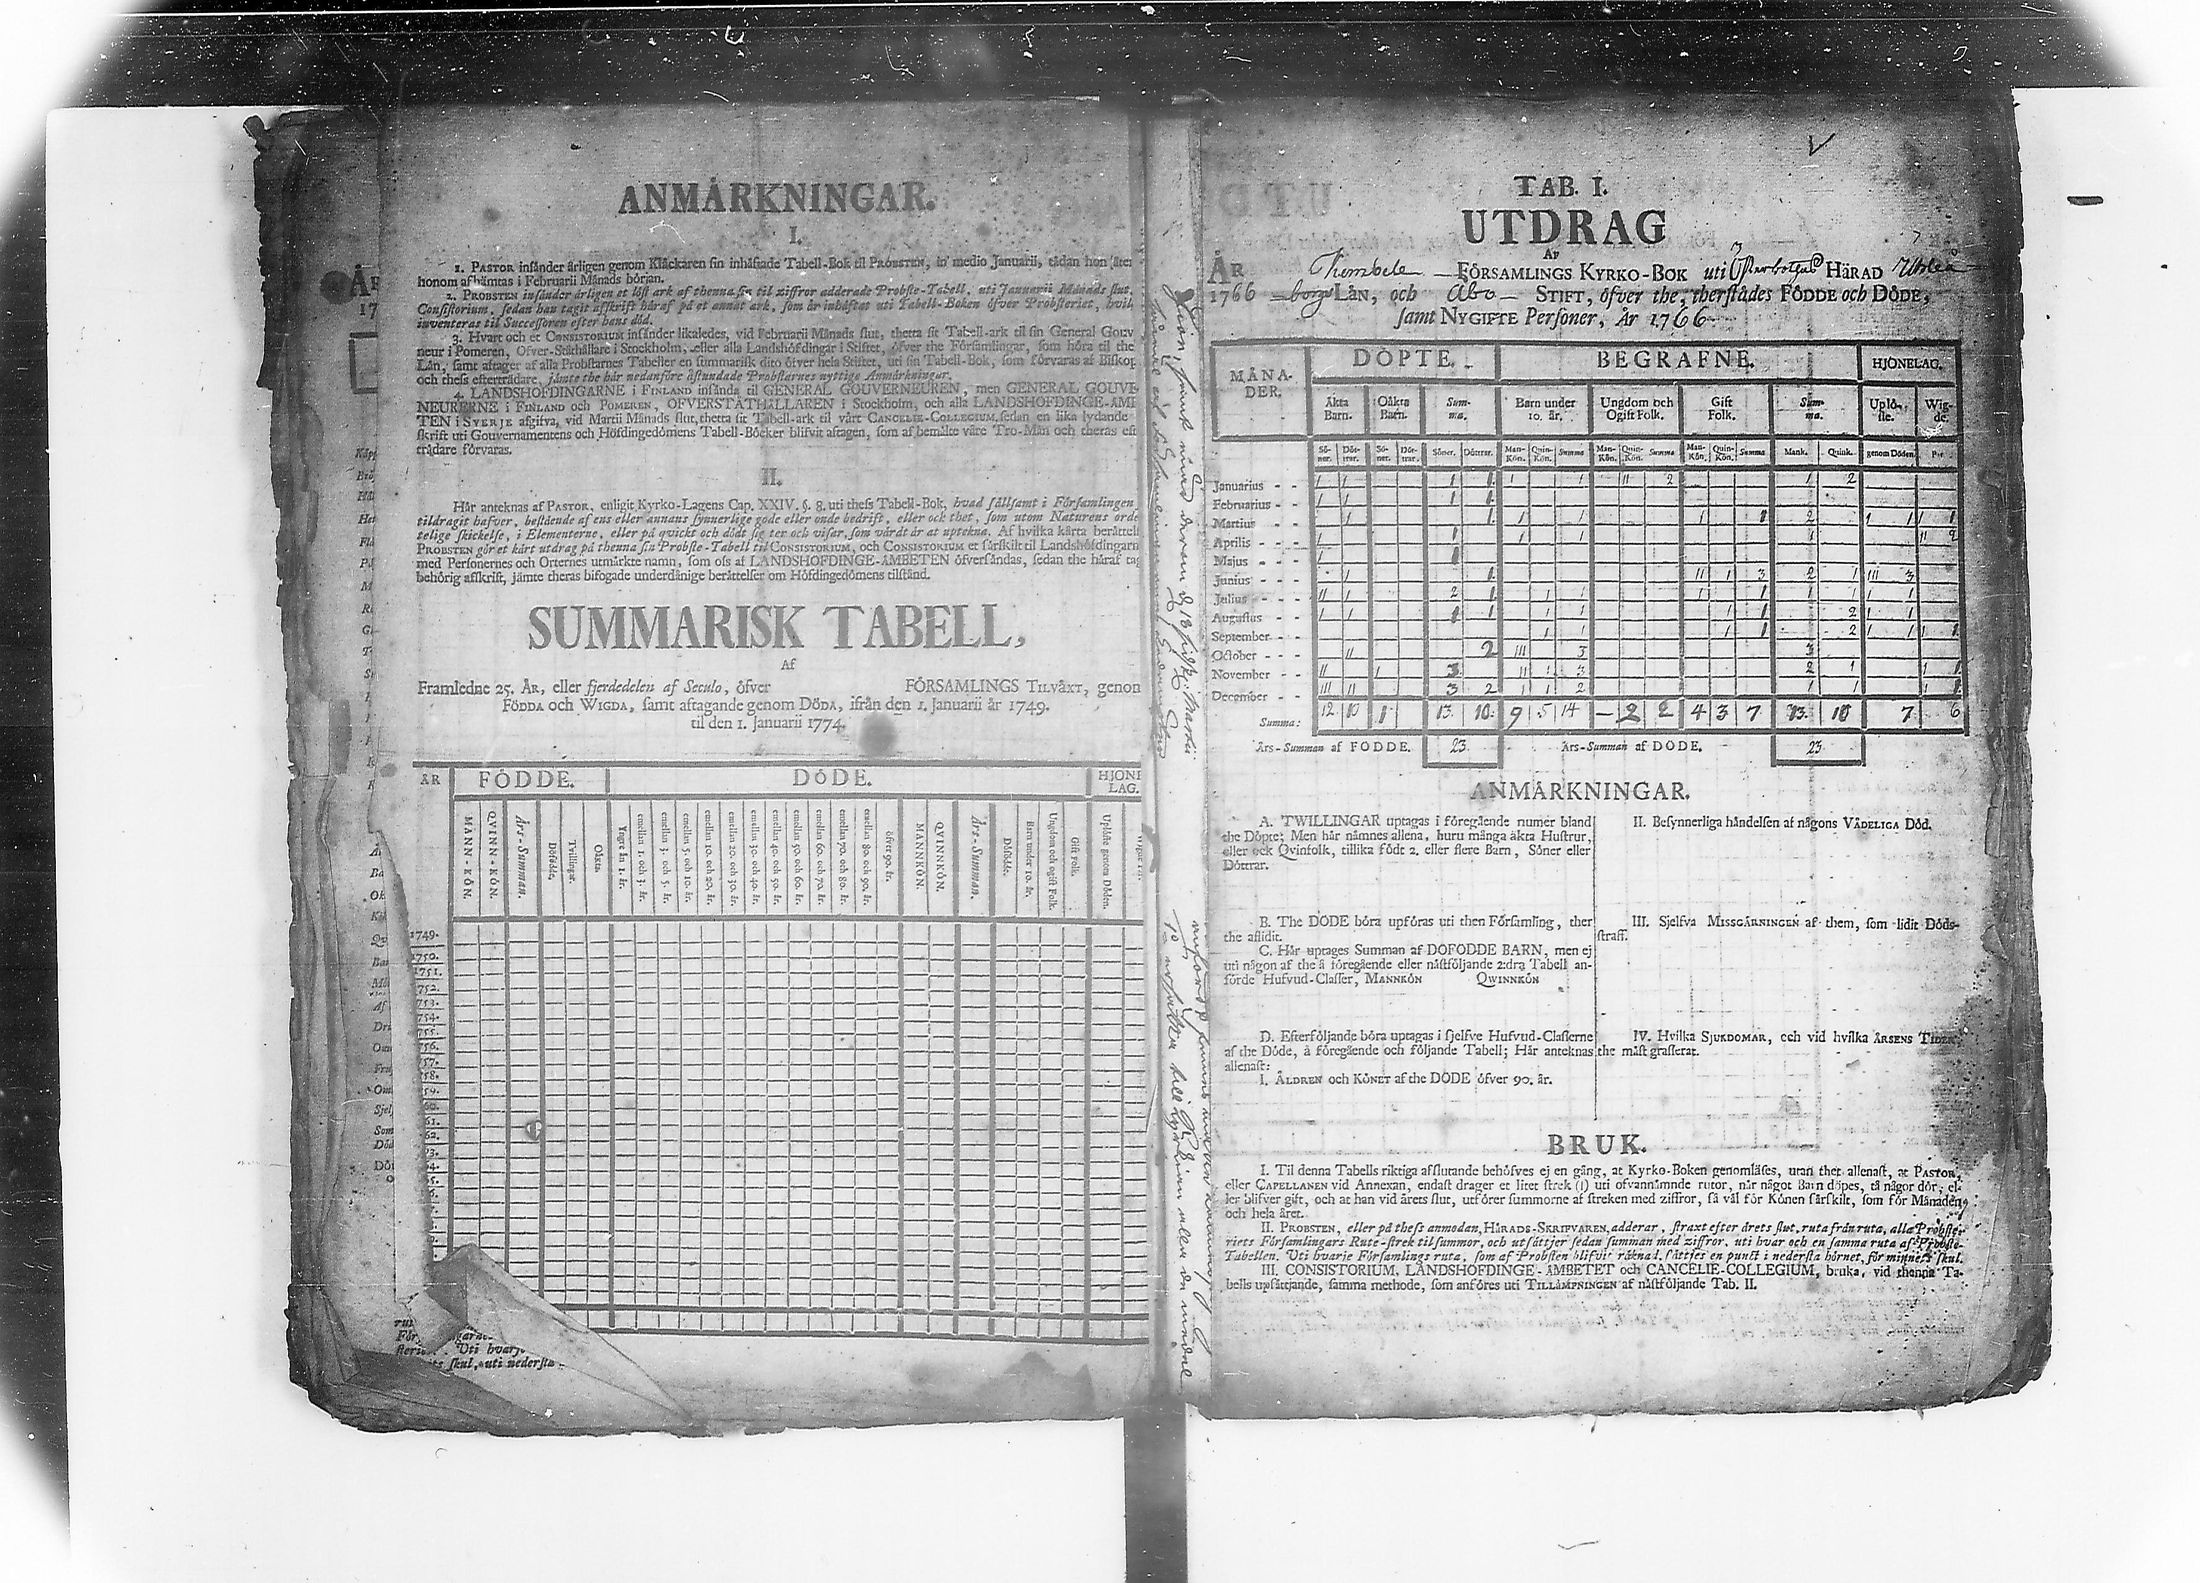 ANMÄRKNINGAR.
I.
1. PASTOR insänder årligen genom Klåckaren sin inhäftade Tabell-Bok til PROBSTEN, in medio Januarii, tädan hon åter
honom afhämtas i Februarii Månads början.
2. PROBSTEN insänder årligen et löst ark af thenna sin til ziffror adderade Probste-Tabell, uti Januarii Månads slut,
Consistorium, sedan han tagit afskrift häraf på et annat ark, som är inhäftat uti Tabell-Boken öfver Probsteriet, hvil
inventeras til Successoren efter hans död.
3. Hvart och et CONSISTORIUM insänder likaledes, vid Februarii Månads slut, thetta sit Tabell-ark til sin General Gouv
neur i Pomeren, Öfver-Ståthållare i Stockholm, eller alla Landshöfdingar i Stiftet, öfver the Församlingar, som höra til the
Län, samt aftager af alla Probstarnes Tabeller en summarisk dito öfver hela Stiftet, uti sin Tabell-Bok, som förvaras af Biskop
och thess efterträdare, jämte the här nedanföre åstundade Probstarnes nyttige Anmärkningar.
4. LANDSHÖFDINGARNE i FINLAND insända til GENERAL GOUVERNEUREN, men GENERAL GOUVE
NEURERNE i FINLAND och POMEREN, ÖFVERSTÅTHÅLLAREN i Stockholm, och alla LANDSHÖFDINGE-ÄMB
TEN i SVERJE afgifva, vid Martii Månads slut, thetta sit Tabell-ark til vårt CANCELIE-COLLEGIUM, sedan en lika lydande
skrift uti Gouvernamentens och Höfdingedömens Tabell-Böcker blifvit aftagen, som af bemälte våre Tro-Män och theras eft
trädare förvaras.
II.
Här anteknas af PASTOR, enligit Kyrko-Lagens Cap. XXIV. §. 8. uti thess Tabell-Bok, hvad sällsamt i Församlingen
tildragit hafver, bestående af ens eller annans synnerlige gode eller onde bedrift, eller ock thet, som utom Naturens orde
telige skickelse, i Elementerne, eller på qvickt och dödt sig ter och visar, som värdt är at upteknа. Af hvilka kårta berättels
PROBSTEN gör et kårt utdrag på thenna sin Probste-Tabell til CONSISTORIUM, och CONSISTORIUM et särskilt til Landshöfdingarn
med Personernes och Orternes utmärkte namn, som oss af LANDSHÖFDINGE-ÄMBETEN öfversändas, sedan the häraf tag
behörig afskrift, jämte theras bifogade underdånige berättelser om Höfdingedömens tilstånd.
SUMMARISK TABELL,
Af
Framledne 25. ÅR, eller fjerdedelen af Seculo, öfver FÖRSAMLINGS TILVÄXT, genom
FÖDDA och WIGDA, samt aftagande genom DÖDA, ifrån den 1. Januarii år 1749.
til den 1. Januarii 1774.
ÅR FÖDDE. DÖDE. HJONE
LAG.
MANN-KÖN. QVINN-KÖN. Års-Summan. Dödfödde. Tvillingar. Oäkta. Yngre än 1. år. emellan 1. och 3. år. emellan 3. och 5. år. emellan 5. och 10. år. emellan 10. och 20. år. emellan 20. och 30. år. emellan 30. och 40. år. emellan 40. och 50. år. emellan 50. och 60. år. emellan 60. och 70. år. emellan 70. och 80. år. emellan 80. och 90. år. öfver 90. år. MANNKÖN. QVINNKÖN. Års-Summan. Dödfödde. Barn under 10. år. Ungdom och ogift Folk. Gift Folk. Uplöste genom Döden.
1749.
1750.
1751.
752.
753.
754.
755.
756.
757.
758.
759.
60.
61.
62.
TAB. I.
UTDRAG
AF
ÅR Kembele FÖRSAMLINGS KYRKO-BOK uti Österbotns HÄRAD Uhleå
1766 borgs LÄN, och Åbo STIFT, öfver the, therstädes FÖDDE och DÖDE,
samt NYGIFTE Personer, År 1766
MÅNA-
DER. DÖPTE. BEGRAFNE. HJONELAG.
Äkta
Barn. Oäkta
Barn. Sum-
ma. Barn under
10. år. Ungdom och
Ogift Folk. Gift
Folk. Sum-
ma. Uplö-
ste. Wig-
de.
Sö-
ner. Döt-
trar. Sö-
ner. Döt-
trar. Söner. Döttrar. Man-
Kön. Quin-
Kön. Summa Man-
Kön. Quin-
Kön. Summa Man-
Kön. Quin-
Kön. Summa Mank. Quink. genom Döden. Par
Januarius - - 1 1 1 1 1 1 11 2 1 2
Februarius - - 1 1 1 1
Martius - - 1 1 1 1 1 1 2 1 1 1 1
Aprilis - - 1 1 1 1 1 11 2
Majus - - - 1 1
Junius - - - 1 1 11 1 3 2 1 111 3
Julius - - - 11 1 2 1 1 1 1 1 1 1 1 1
Augustus - - 1 1 1 1 1 1 1 1 2 1 1
September - - 1 1 1 1 2 1 1 1 1
October - - - 11 2 111 3 3
November - - 11 1 3 11 1 3 2 1 1 1
December - - 111 11 3 2 1 1 2 1 1 1 1
Summa: 12 10 1 13. 10. 9 5 14 — 2 2 4 3 7 13. 10 7 6
Års-Summan af FÖDDE. 23. Års-Summan af DÖDE. 23
ANMÄRKNINGAR.
A. TWILLINGAR uptagas i föregående numer bland
the Döpte; Men här nämnes allena, huru många äkta Hustrur,
eller ock Qvinfolk, tillika födt 2. eller flere Barn, Söner eller
Döttrar.
B. The DÖDE böra upföras uti then Församling, ther
the aflidit.
C. Här uptages Summan af DÖFÖDDE BARN, men ej
uti någon af the å föregående eller nästföljande 2:dra Tabell an-
förde Hufvud-Classer, MANNKÖN QWINNKÖN
D. Efterföljande böra uptagas i sjelfve Hufvud-Classerne
af the Döde, å föregående och följande Tabell; Här anteknas
allenast:
I. ÅLDREN och KÖNET af the DÖDE öfver 90. år.
II. Besynnerliga händelsen af någons VÅDELIGA DÖD.
III. Sjelfva MISSGÄRNINGEN af them, som lidit Döds-
straff.
IV. Hvilka SJUKDOMAR, och vid hvilka ÅRSENS TIDER,
the mäst grasserat.
BRUK.
I. Til denna Tabells riktiga afslutande behöfves ej en gång, at Kyrko-Boken genomläses, utan thet allenast, at PASTOR,
eller CAPELLANEN vid Annexan, endast drager et litet strek (|) uti ofvannämnde rutor, när något Barn döpes, tå någor dör, el-
ler blifver gift, och at han vid årets slut, utförer summorne af streken med ziffror, så väl för Könen särskilt, som för Månaden,
och hela året.
II. PROBSTEN, eller på thess anmodan, HÄRADS-SKRIFVAREN, adderar, straxt efter årets slut, ruta från ruta, alla Probste-
riets Församlingars Rute-strek til summor, och utsättjer sedan summan med ziffror, uti hvar och en samma ruta af Probste-
Tabellen. Uti hvarje Församlings ruta, som af Probsten blifvit räknad, sättjes en punct i nedersta hörnet, för minnets skul.
III. CONSISTORIUM, LANDSHÖFDINGE-ÄMBETET och CANCELIE-COLLEGIUM, bruka, vid thenna Ta-
bells upsättjande, samma methode, som anföres uti TILLÄMPNINGEN af nästföljande Tab. II.